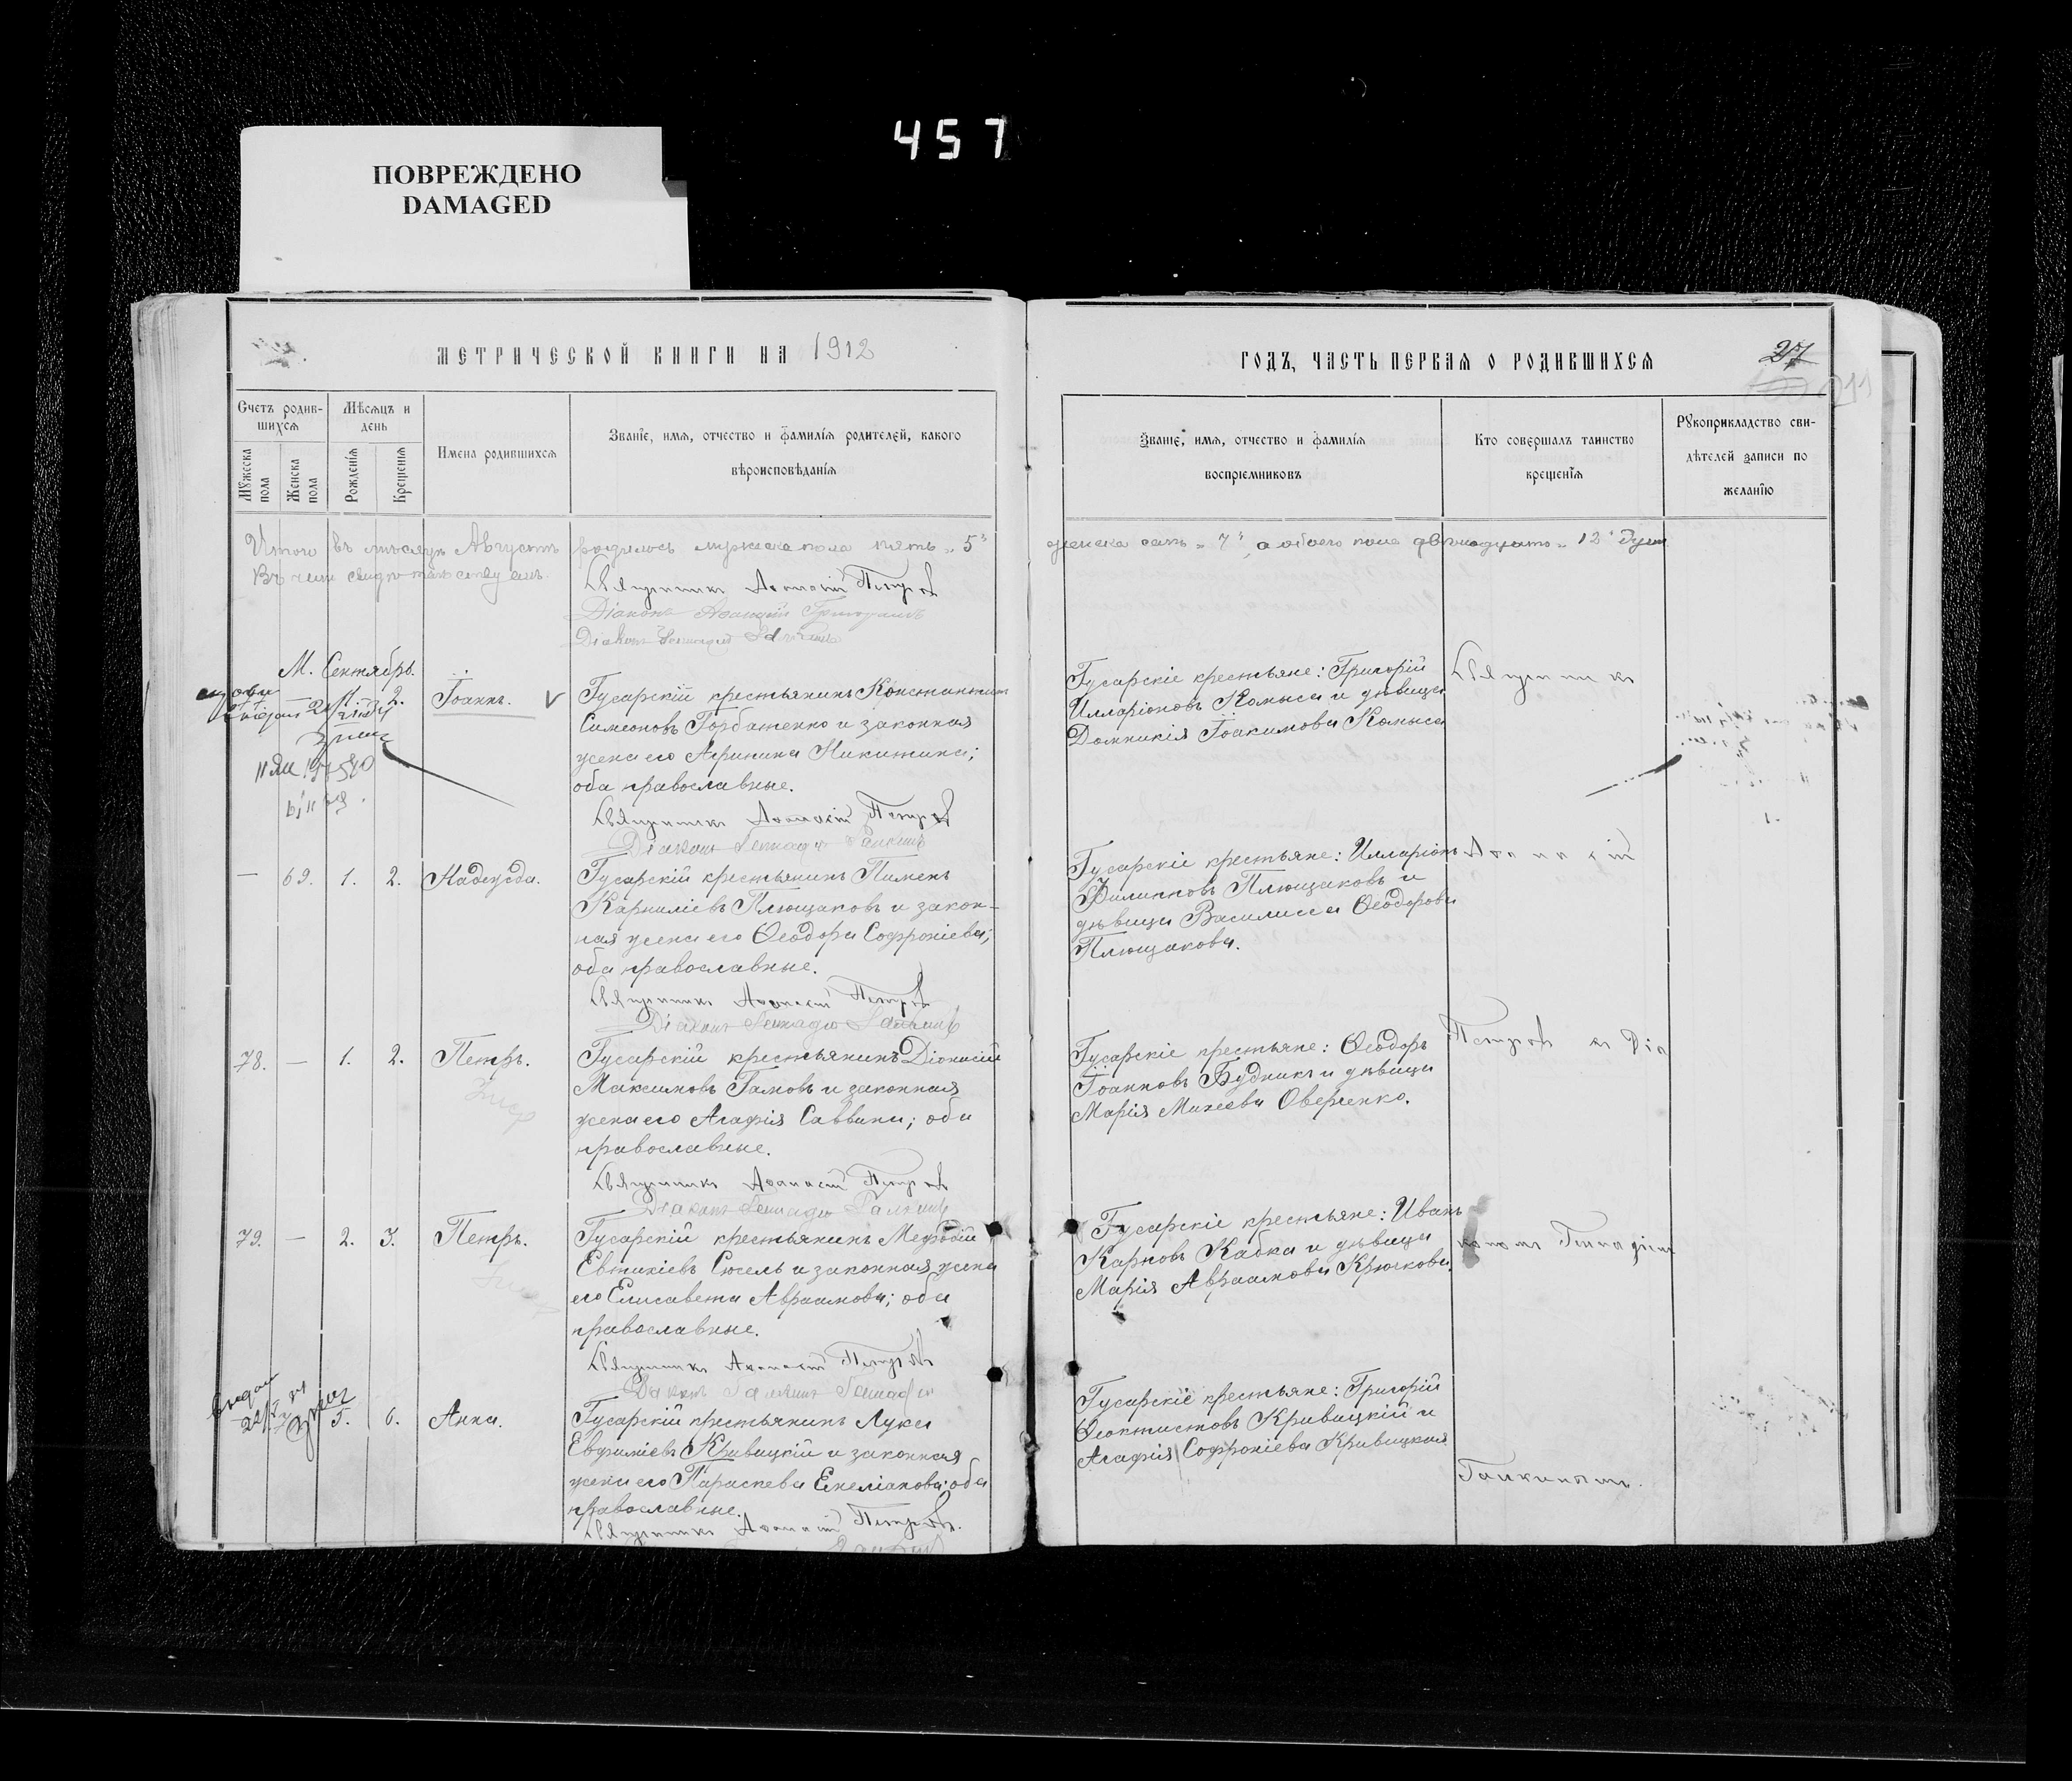 457
ПОВРЕЖДЕНО
DAMAGED
МЕТРИЧЕСКОЙ КНИГИ НА 1912
Счетъ родив-
шихся
Мѣсяцъ и
день
Мужеска
пола
Женска
пола
Рожденія
Крещенія
Имена родившихся
Званіе, имя, отчество и фамилія родителей, какого
вѣроисповѣданія
Итого въ мѣсяцѣ Августѣ родилось мужеска пола пять „5"
Въ чемъ свидѣтельствуемъ.
Священникъ Аѳанасій Петровъ
Діаконъ
Діаконъ Геннадій Галкинъ
М. Сентябрь.
2. Іоаннъ. V Гусарскій крестьянинъ Константинъ
Симеоновъ Горбатенко и законная
жена его Агрипина Никитина;
оба православные.
Священникъ Аѳанасій Петровъ
Діаконъ Геннадій Галкинъ
— 69. 1. 2. Надежда. Гусарскій крестьянинъ Пименъ
Карниліевъ Плющаковъ и закон-
ная жена его Ѳеодора Софроніева;
оба православные.
Священникъ Аѳанасій Петровъ
Діаконъ Геннадій Галкинъ
78. — 1. 2. Петръ. Гусарскій крестьянинъ Діонисій
Максимовъ Гамовъ и законная
жена его Агафія Саввина; оба
православные.
Священникъ Аѳанасій Петровъ
Діаконъ Геннадій Галкинъ
79. — 2. 3. Петръ. Гусарскій крестьянинъ Меѳодій
Евтихіевъ Сюсель и законная жена
его Елисавета Авраамова; оба
православные.
Священникъ Аѳанасій Петровъ
Діаконъ Галкинъ Геннадій
5. 6. Анна. Гусарскій крестьянинъ Лука
Евфиміевъ Кривицкій и законная
жена его Параскева Емеліанова; оба
православные.
Священникъ Аѳанасій Петровъ.
ГОДЪ, ЧАСТЬ ПЕРВАЯ О РОДИВШИХСЯ
27
Званіе, имя, отчество и фамилія
воспріемниковъ
Кто совершалъ таинство
крещенія
Рукоприкладство сви-
дѣтелей записи по
желанію
женска семь „7", а обоего пола двѣнадцать „12" душъ
Гусарскіе крестьяне: Григорій
Илларіоновъ Комыса и дѣвица
Домникія Іоакимова Комыса
Священникъ
Гусарскіе крестьяне: Илларіонъ
Филипповъ Плющаковъ и
дѣвица Василисса Ѳеодорова
Плющакова.
Аѳанасій
Гусарскіе крестьяне: Ѳеодоръ
Іоанновъ Будникъ и дѣвица
Марія Михеева Оверченко.
Петровъ съ Діа
Гусарскіе крестьяне: Иванъ
Карповъ Кабка и дѣвица
Марія Авраамова Крючкова.
кономъ Геннадіемъ
Гусарскіе крестьяне: Григорій
Ѳеоктистовъ Кривицкій и
Агафія Софроніева Кривицкая
Галкинымъ.